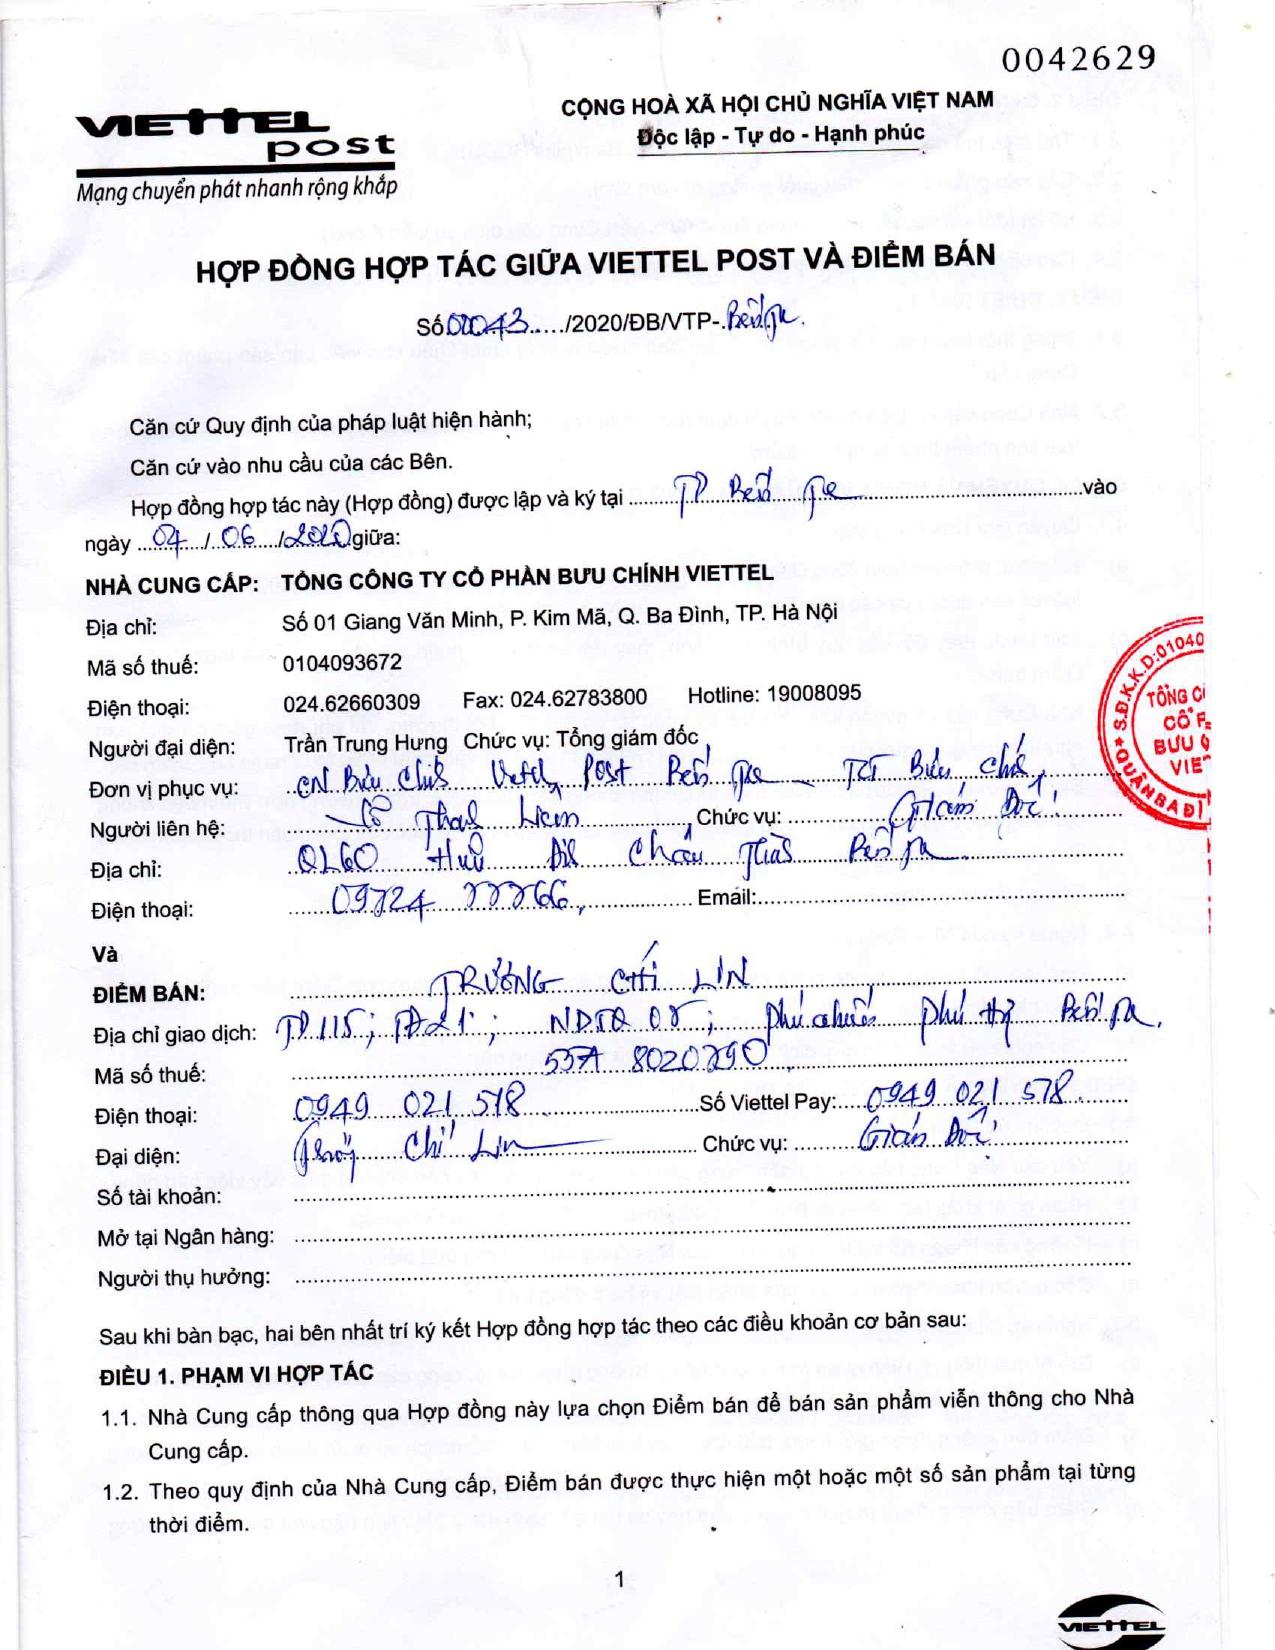 0042629
VIETTEL
post
Mạng chuyển phát nhanh rộng khắp
CỘNG HOÀ XÃ HỘI CHỦ NGHĨA VIỆT NAM
Độc lập - Tự do - Hạnh phúc
HỢP ĐỒNG HỢP TÁC GIỮA VIETTEL POST VÀ ĐIỂM BÁN
Số 02043...../2020/ĐB/VTP-.Bến Tre.
Căn cứ Quy định của pháp luật hiện hành;
Căn cứ vào nhu cầu của các Bên.
Hợp đồng hợp tác này (Hợp đồng) được lập và ký tại TP Bến Tre vào
ngày 04/06/2020 giữa:
NHÀ CUNG CẤP: TỔNG CÔNG TY CỔ PHẦN BƯU CHÍNH VIETTEL
Địa chỉ: Số 01 Giang Văn Minh, P. Kim Mã, Q. Ba Đình, TP. Hà Nội
Mã số thuế: 0104093672
Điện thoại: 024.62660309 Fax: 024.62783800 Hotline: 19008095
Người đại diện: Trần Trung Hưng Chức vụ: Tổng giám đốc
Đơn vị phục vụ: CN Bưu Chính Viettel Post Bến Tre - TCT Bưu Chính
Người liên hệ: Thanh Liêm Chức vụ: Giám Đốc
Địa chỉ: QL60 Hữu Định Châu Thành Bến Tre
Điện thoại: Email:
Và
ĐIỂM BÁN: TRƯƠNG CHÍ LIN
Địa chỉ giao dịch: TĐ115; TĐ21; NDTQ 05; Phú chiến Phú Hự Bến Tre.
Mã số thuế: 55A 8020290
Điện thoại: 0949 021 578 Số Viettel Pay: 0949 021 578.
Đại diện: Trương Chí Lin Chức vụ: Giám Đốc
Số tài khoản:
Mở tại Ngân hàng:
Người thụ hưởng:
S.Đ.K.K.D:01040
TỔNG C
CỔ P
BƯU C
VIE
★ QUẬN BA ĐÌ
Sau khi bàn bạc, hai bên nhất trí ký kết Hợp đồng hợp tác theo các điều khoản cơ bản sau:
ĐIỀU 1. PHẠM VI HỢP TÁC
1.1. Nhà Cung cấp thông qua Hợp đồng này lựa chọn Điểm bán để bán sản phẩm viễn thông cho Nhà
Cung cấp.
1.2. Theo quy định của Nhà Cung cấp, Điểm bán được thực hiện một hoặc một số sản phẩm tại từng
thời điểm.
1
VIETTEL